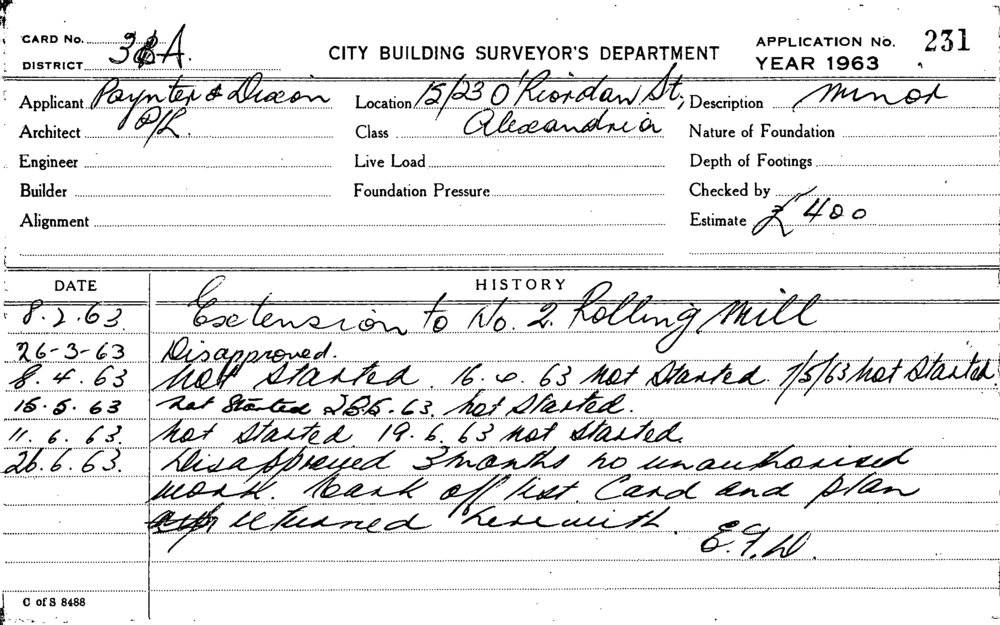 CARD No. 3 A.
DISTRICT
CITY BUILDING SURVEYOR'S DEPARTMENT
APPLICATION No. 231
YEAR 1963
Applicant Paynter & Dixon
Location 15/23 O'Riordan St,
Description Minor
Architect P/L.
Class Alexandria
Nature of Foundation
Engineer
Live Load
Depth of Footings
Builder
Foundation Pressure
Checked by
Alignment
Estimate £400
DATE HISTORY
8.2.63. Extension to No. 2. Rolling Mill
26-3-63 Disapproved.
8.4.63 not Started. 16.4.63 not Started. 7/5/63 not Started.
15.5.63 not Started 25.5.63. not Started.
11.6.63. not Started. 19.6.63 not Started.
26.6.63. Disapproved 3 months no unauthorised
work. Mark off list. Card and plan
returned herewith.
E.F.D.
C of S 8488